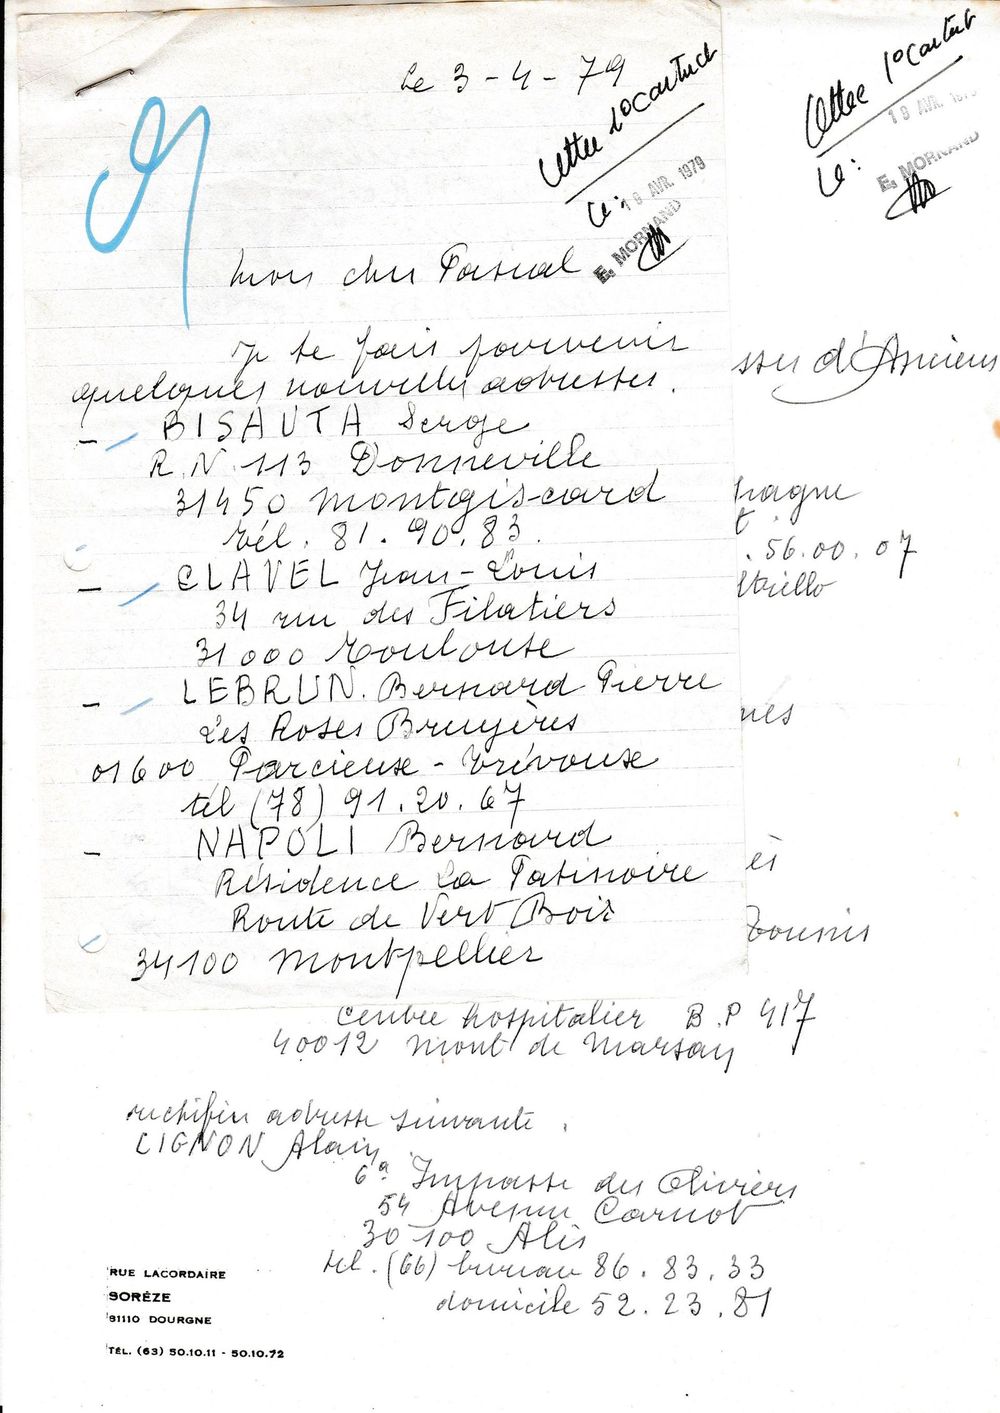 Le 3-4-79
Lettre 10 cartuch
Le: 18 AVR. 1979
E. MORNAND
Mon cher Pascal
Je te fais parvenir
quelques nouvelles adresses.
- BISAUTA Serge
R.N. 113 Donneville
31450 Montgiscard
tél. 81.90.83.
- CLAVEL Jean-Louis
34 rue des Filatiers
31000 Toulouse
- LEBRUN. Bernard Pierre
Les Roses Bruyères
01600 Parcieuse - Trévouse
tél (78) 91.20.67
- NAPOLI Bernard
Résidence La Patinoire
Route de Vert Bois
34100 Montpellier
Le:
E. MORNAND
d'Amiens
. 56.00.07
Centre hospitalier B.P 417
40012 Mont de Marsan
rectifier adresse suivante.
CIGNON Alain
6a Impasse des Oliviers
54 Avenue Carnot
30100 Alès
tel. (66) bureau 86.83.33
domicile 52.23.81
RUE LACORDAIRE
SORÈZE
81110 DOURGNE
TÉL. (63) 50.10.11 - 50.10.72